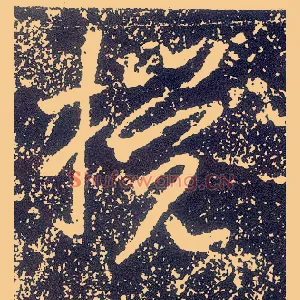 授
ShufaWang.CN